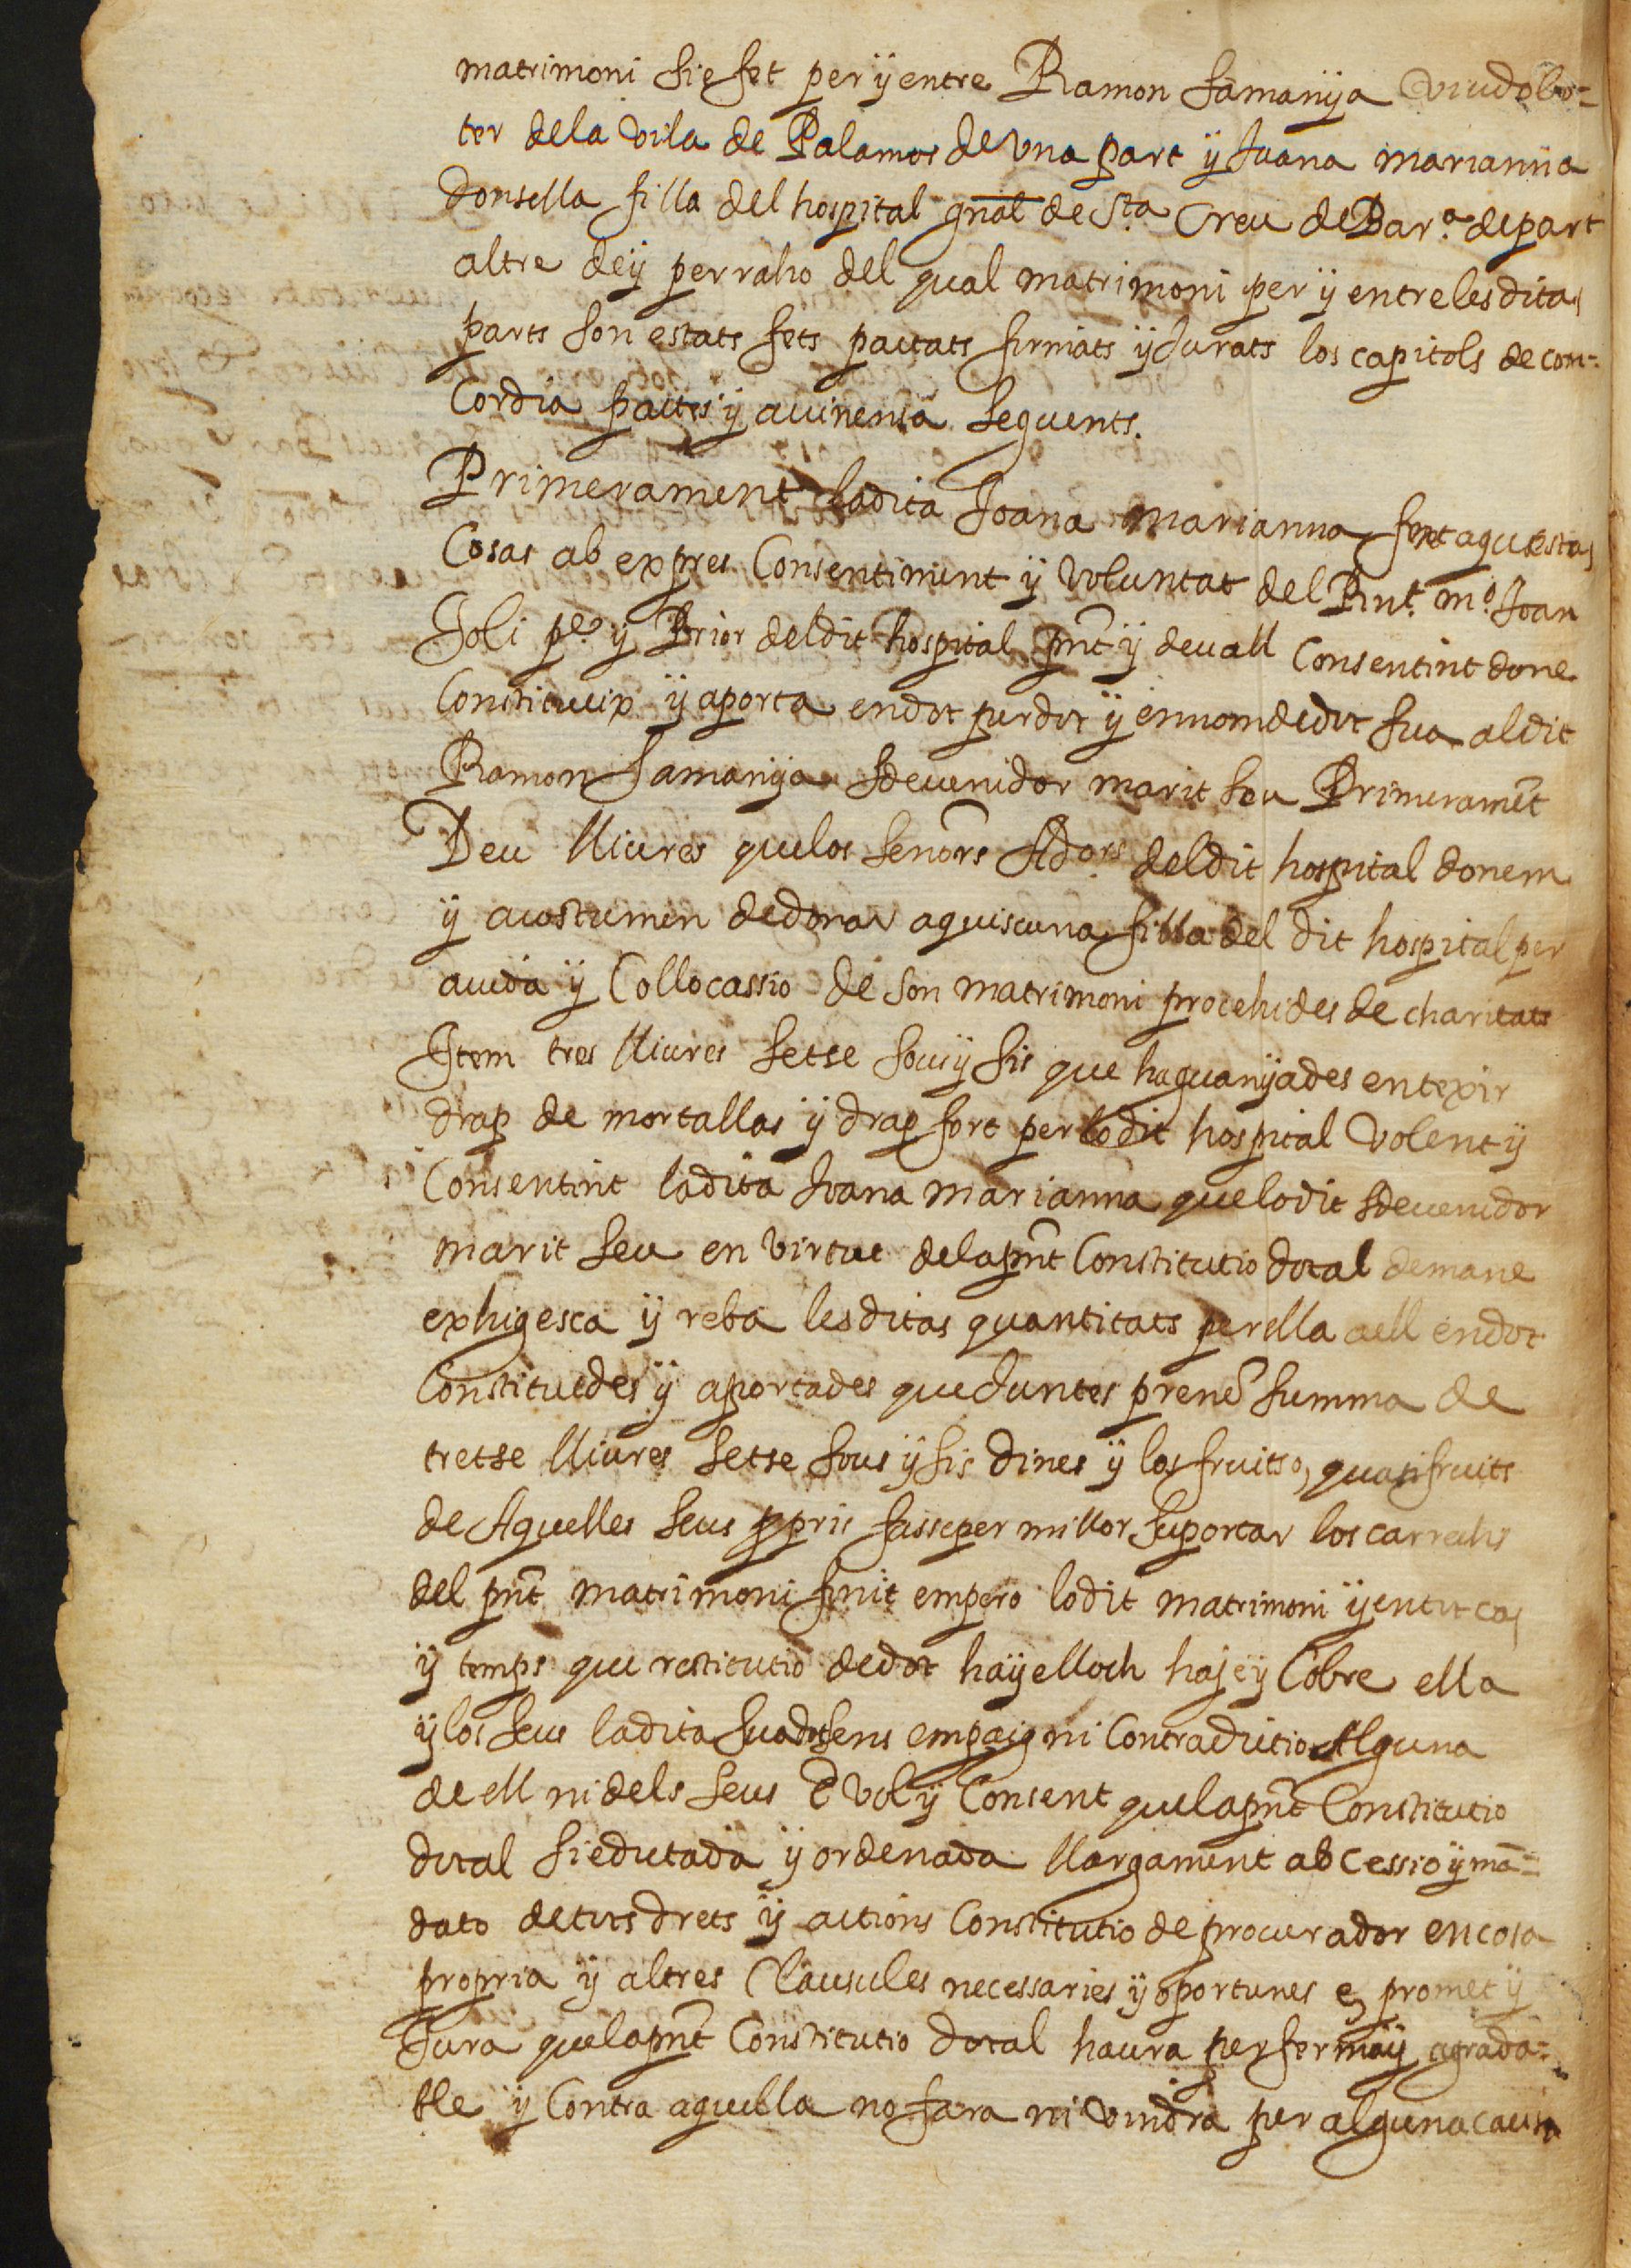 matrimoni sie fet per ÿ entre Ramon samanÿa viudo bo=
ter dela vila de Palamos de vna part ÿ Juana marianna
donsella filla del hospital gn̄al de Sta Creu de Bar.ª de part
altre deÿ per raho del qual matrimoni per ÿ entre les ditas
parts son estats fets pactats firmats ÿ Jurats los capitols de con=
Cordia pactes ÿ auinensa seguents.
Primerament la dita Joana marianna fent aquestas
Cosas ab expres Consentiment ÿ voluntat del Rnt. mº. Joan
Joli pe. ÿ Prior del dit hospital pn̄t ÿ deuall Consentint done
Constitueix ÿ aporta en dot per dot ÿ en nom de dot sua al dit
Ramon Samanÿa sdeuenidor marit seu Primeramēt
Deu lliures que los senōrs Adors. del dit hospital donem
ÿ acostumen de donar a quiscuna filla del dit hospital per
aiuda ÿ Collocassio de son matrimoni procehides de charitats
Item tres lliures setse sous ÿ sis que ha guanÿades en texir
drap de mortallas ÿ drap fort per lo dit hospital volent ÿ
Consentint la dita Joana marianna que lo dit sdeuenidor
marit seu en virtut dela pn̄t Constitutio dotal demane
exhigesca ÿ reba les ditas quantitats per ella a ell en dot
Constituides ÿ aportades que Juntes prenē summa de
tretse lliures setse sous ÿ sis dines ÿ los fruits o, quasi fruits
de Aquelles seus ppris fasse per millor suportar los carrechs
del pn̄t matrimoni finit empero lo dit matrimoni ÿ en tot cas
ÿ temps que restitutio de dot haÿe lloch haje ÿ Cobre ella
ÿ los seus la dita sua dot sens empaig ni Contradictio Alguna
de ell ni dels seus E vol ÿ Consent que la pn̄t Constitutio
dotal sie dictada ÿ ordenada llargament ab cessio ÿ mā=
dato de tots drets ÿ actions Constitutio de procurador en cosa
propria ÿ altres Clausules necessaries ÿ oportunes e, promet ÿ
Jura que la pn̄t Constitutio dotal haura per ferma ÿ agrada=
ble ÿ Contra aquella no fara ni vindra per alguna causa